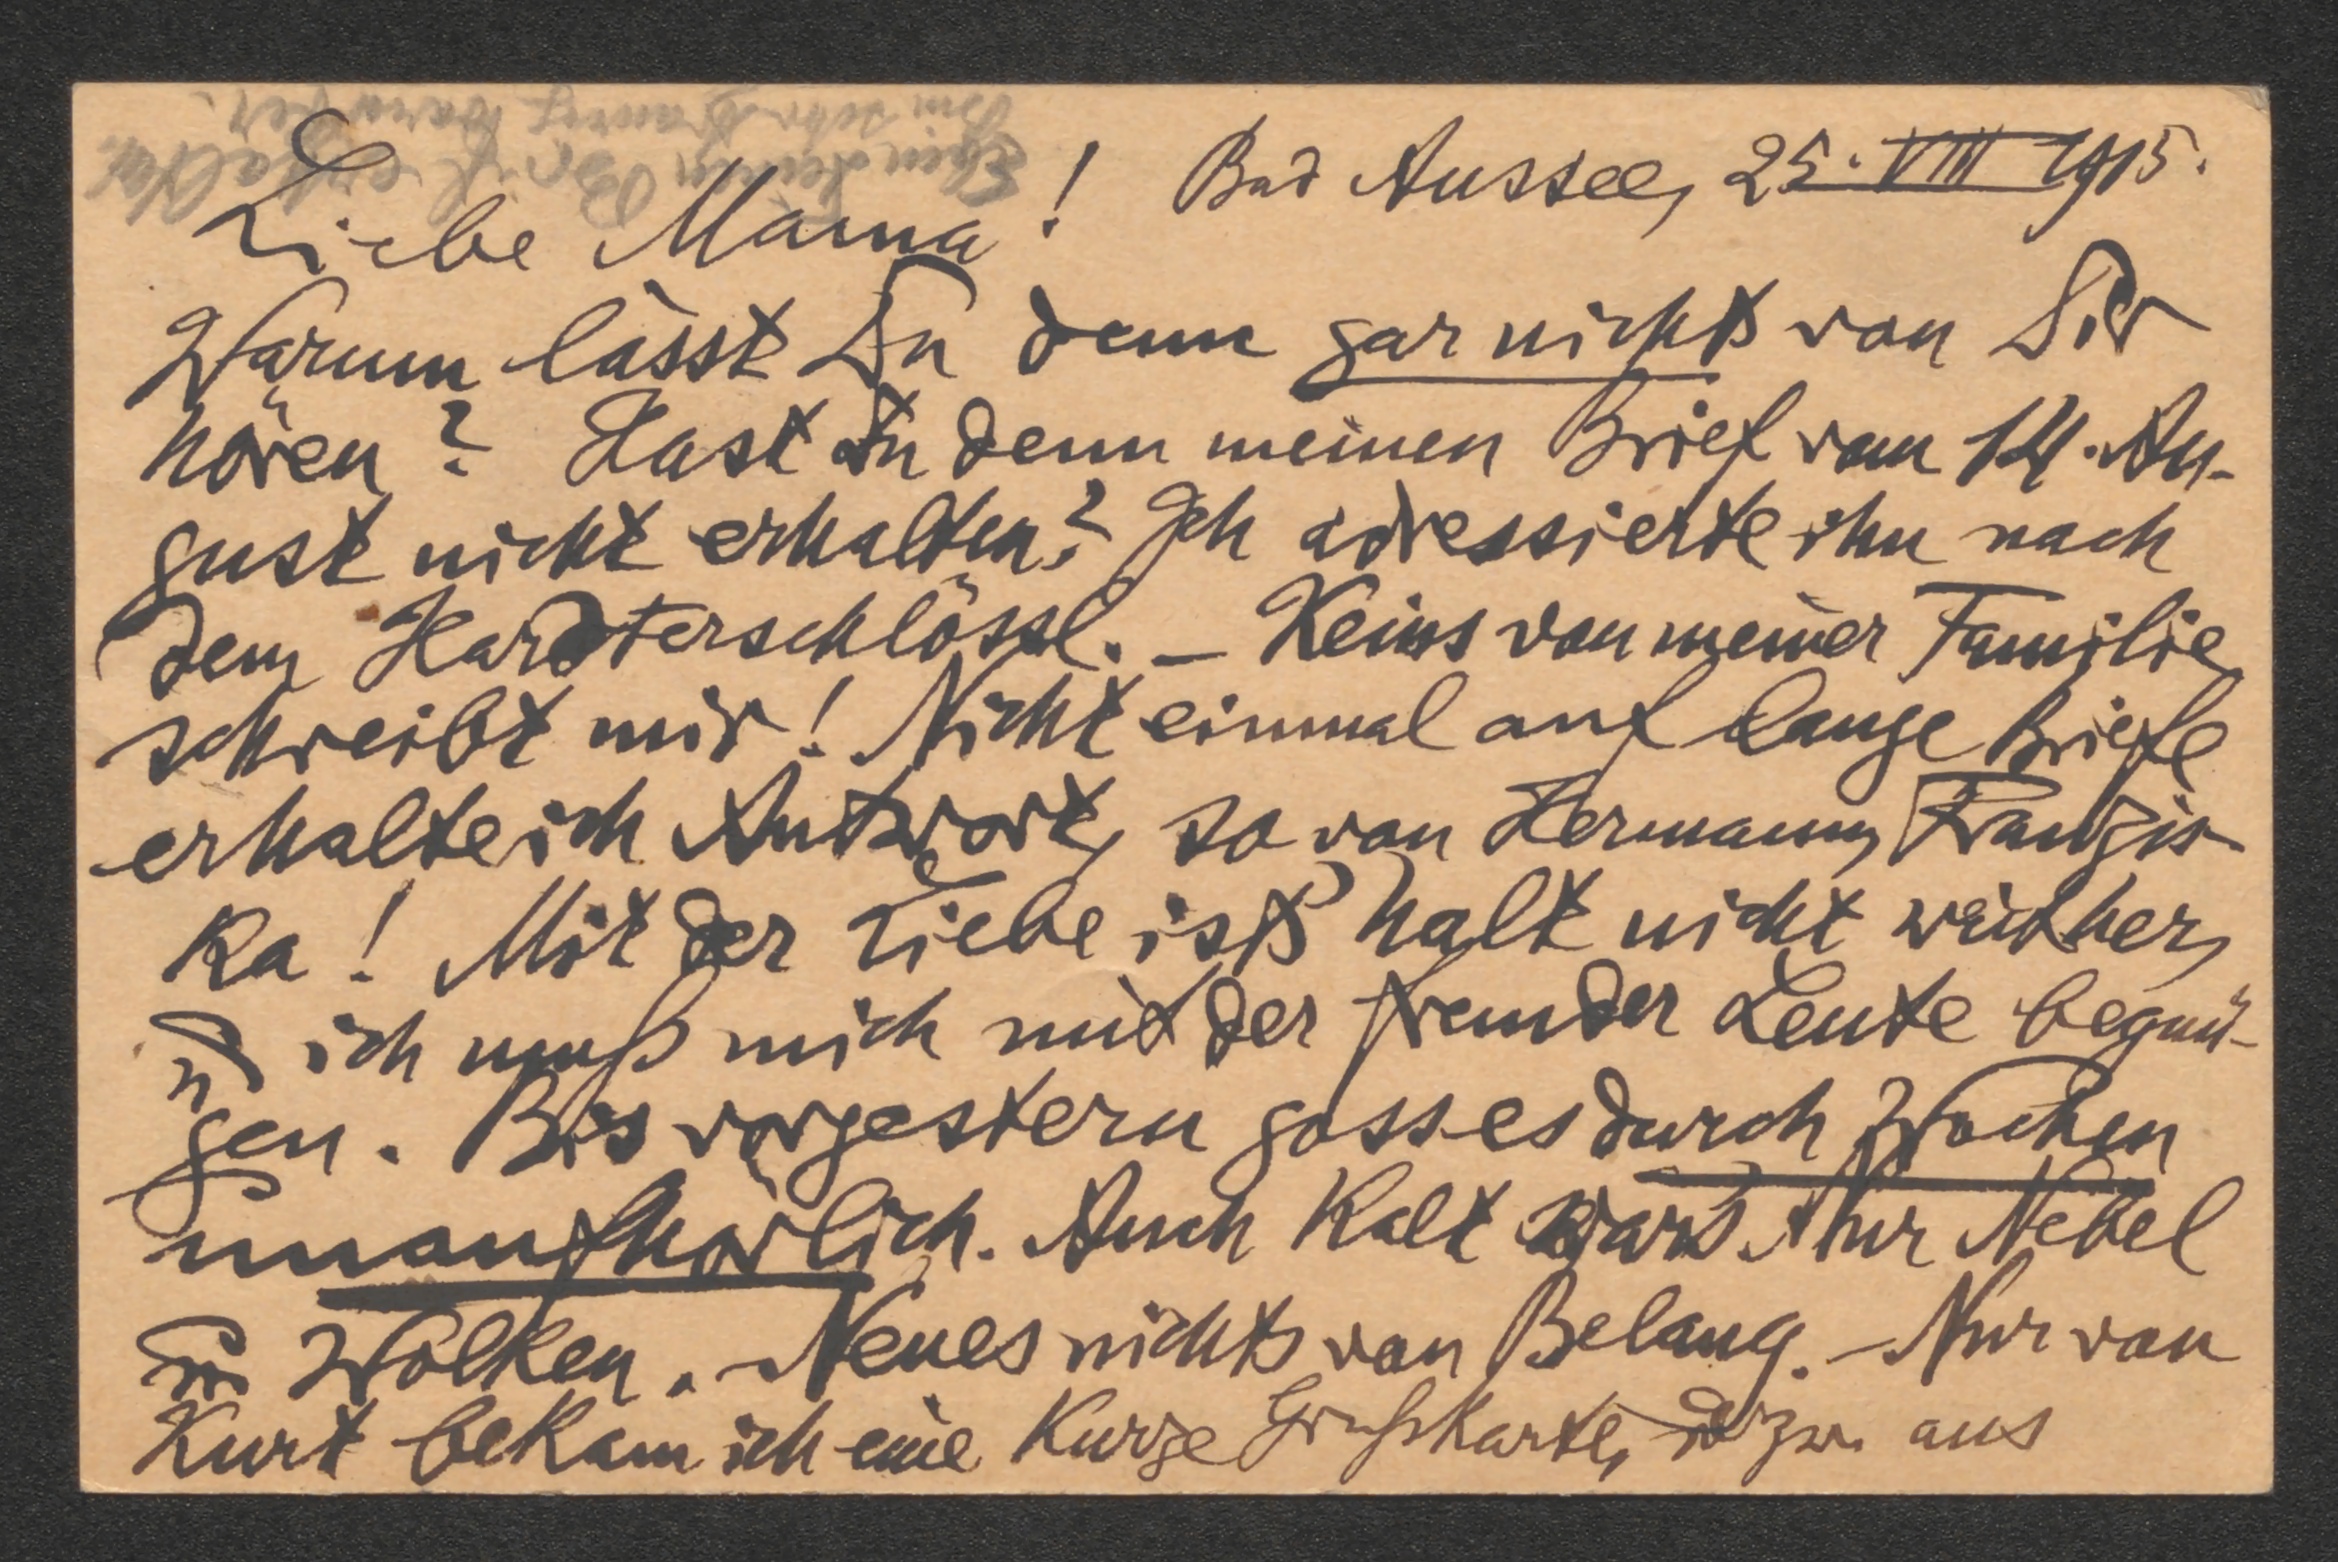 Eben Deinen Brief erhalten.
Bin sehr traurig darüber.
Bad Aussee, 25. VIII 1915.
Liebe Mama!
Warum lässt Du denn gar nichts von Dir
hören? Hast Du denn meinen Brief vom 14. Au-
gust nicht erhalten? Ich adressierte ihn nach
dem Hardterschlössl. – Keins von meiner Familie
schreibt mir! Nicht einmal auf lange Briefe
erhalte ich Antwort, so von Hermann, Franzis-
ka! Mit der Liebe ists halt nicht weit her,
u ich muß mich mit der fremder Leute begnü-
gen. Bis vorgestern goss es durch Wochen
unaufhörlich. Auch kalt wars. Nur Nebel
u Wolken. Neues nichts von Belang. – Nur von
Kurt bekam ich eine kurze Grußkarte, aus